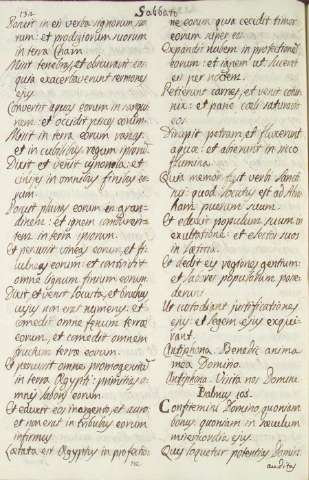 132
Sabbato
Posuit in eis verba signorum suo
rum: et prodigiorum suorum
in terra Cham.
Misit tenebras et obscuravit et
quia exacerbaverunt sermones
ejus
Convertit aquas eorum in sangui
nem: et occidit pisces eorum
Misit in terra eorum ranas
et in cubilibus regum ipsorum
Dixit et venit cynomia: et
cinifes in omnibus finibus eo
rum
Posuit pluvias eorum in gran-
dinem: et ignem comburen-
tem in terra ipsorum
Et percussit vineas eorum, et fi
culneas eorum: et contrivit
omne lignum finium eorum
Dixit et venit locusta, et bruchus
cujus non erat numerus: et
comedit omne fenum terrae
eorum, et comedit omnem
fructum terrae eorum.
Et percussit omne primogenitum
in terra Aegypti: primitias o-
mnis laboris eorum
Et eduxit eos in argento, et auro:
et non erat in tribubus eorum
infirmus
Laetata est Aegyptus in profectio
ne eorum quia cecidit timor
eorum super eos
Expandit nubem in protectionem
eorum: et ignem ut luceret
eis per noctem.
Petierunt carnes, et venit cotur
nix: et pane caeli saturavit
eos
Dirupit petram, et fluxerunt
aquae: et abierunt in sicco
flumina.
Quia memor fuit verbi sancti
sui: quod locutus est ad Abra
ham puerum suum.
Et eduxit populum suum in
exultatione: et electos suos
in laetitia.
Et dedit eis regiones gentium:
et labores populorum posse
derunt.
Ut custodiant justificationes
ejus: et legem ejus exqui
rant.
Antiphona. Benedic anima
mea Domino.
Antiphona. Visita nos Domine
Psalmus 105.
Confitemini Domino quoniam
bonus: quoniam in saeculum
misericordia ejus
Quis loquetur potentias Domini
auditas